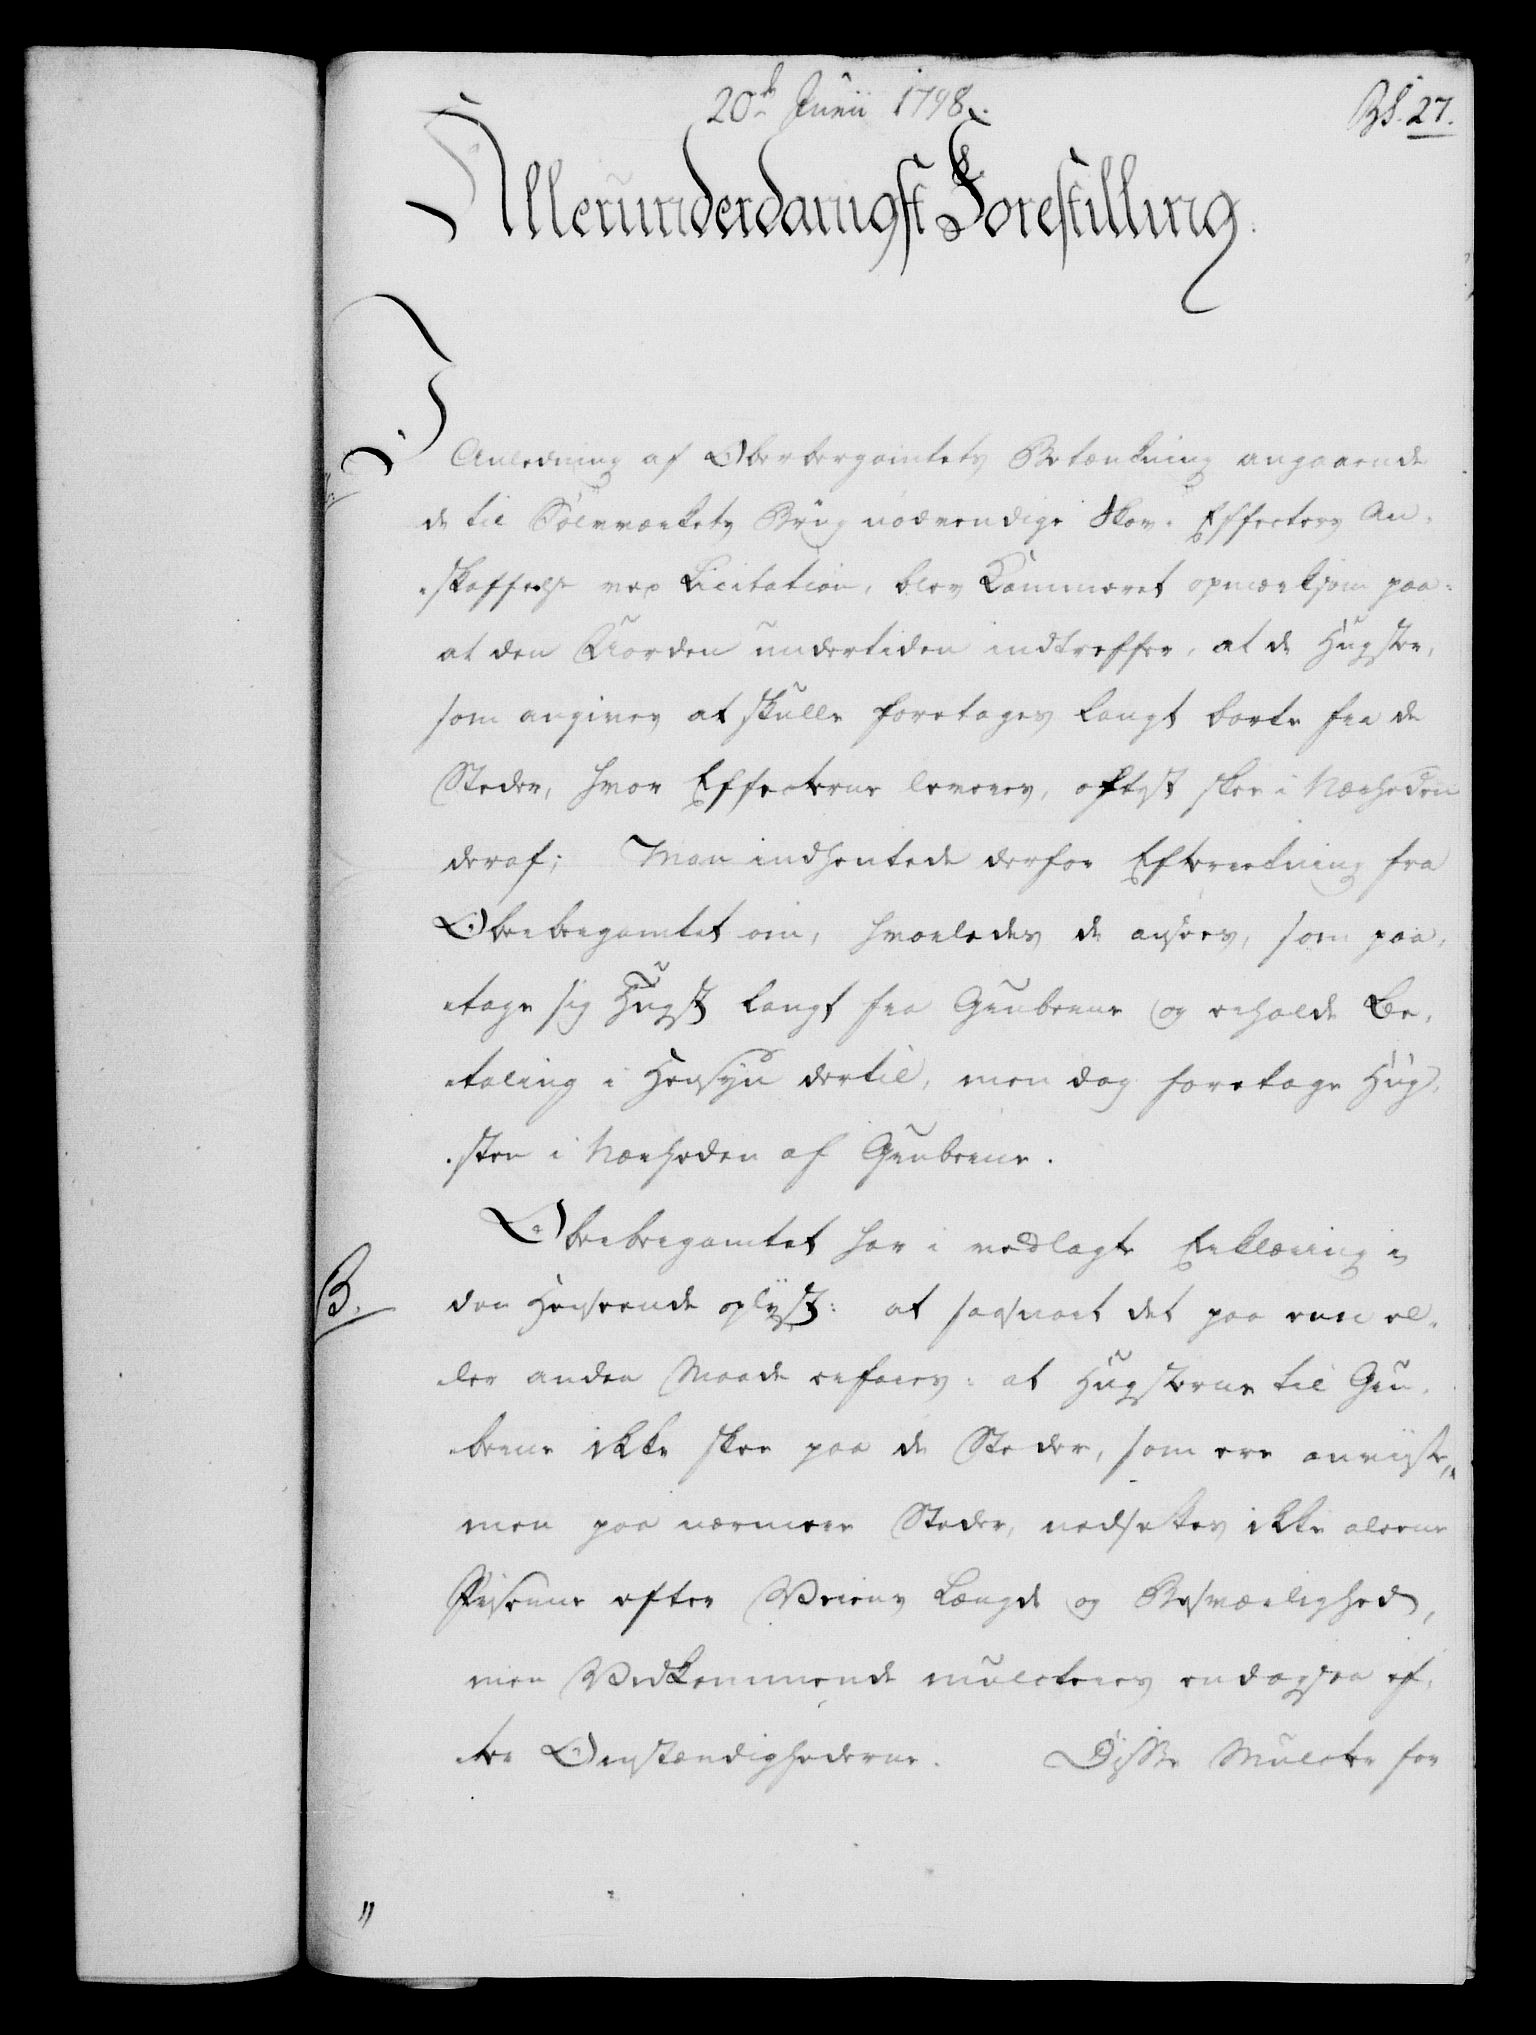 20de Junii 1798.
Bs. 27.
Allerunderdanigst Forestilling.
I
Anledning af Oberbergamtets Betænkning angaaende
de til Sølvværkets Brug nødvendige Skov-Effecters An-
skaffelse ved Licitation, blev Kammeret opmærksom paa:
at den Uorden undertiden indtreffer, at de Hugster,
som angives at skulle foretages langt borte fra de
Steder, hvor Effecterne leveres, oftest skee i Nærheden
deraf; Man indhentede derfor Efterretning fra
Oberbergamtet om, hvorledes de ansees, som paa-
tage sig Hugst langt fra Gruberne og erholde Be-
taling i Hensyn dertil, men dog foretage Hug-
sten i Nærheden af Gruberne.
Oberbergamtet har i vedlagte Erklæring i
B.
den Henseende oplyst: at saasnart det paa een el-
ler anden Maade erfares: at Hugsterne til Gru-
berne ikke skee paa de Steder, som ere anviiste,
men paa nærmere Steder, nedsettes ikke aleene
Priserne efter Veiens Længde og Besværlighed,
men Vedkommende mulcteres endogsaa ef-
ter Omstændighederne. Disse Mulcter for